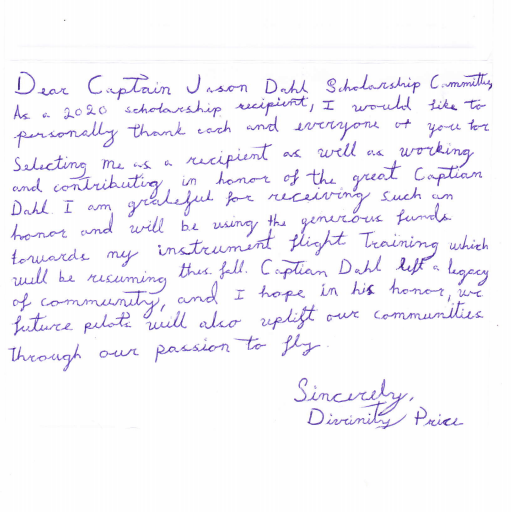 Dear Captain Jason Dahl Scholarship Committee,
As a 2020 scholarship recipient, I would like to
personally thank each and everyone of you for
Selecting me as a recipient as well as working
and contributing in honor of the great Captian
Dahl. I am grateful for receiving such an
honor and will be using the generous funds
towards my instrument flight Training which
will be resuming this fall. Captian Dahl left a legacy
of community, and I hope in his honor, we
future pilots will also uplift our communities
through our passion to fly.
Sincerely,
Divinity Price